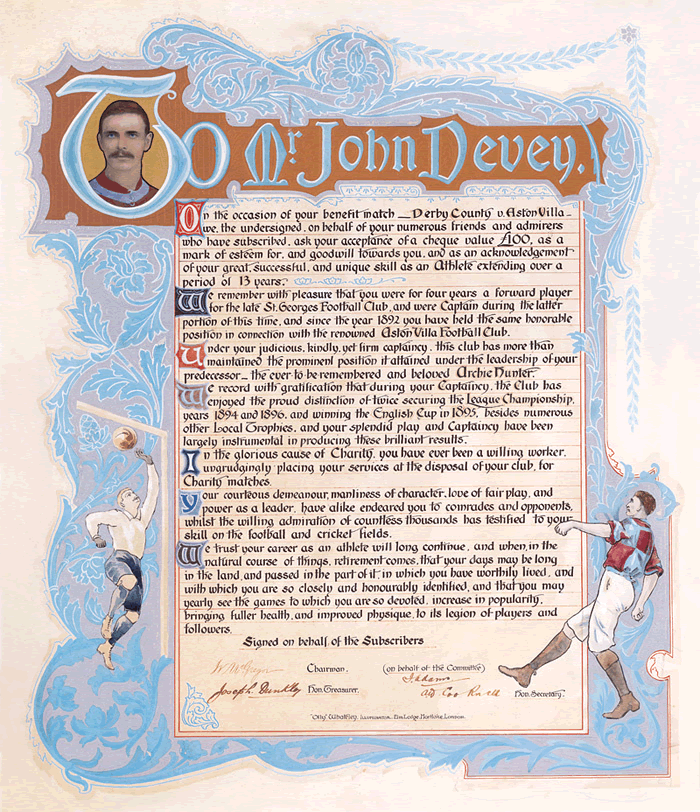 To Mr John Devey.
On the occasion of your benefit match — Derby County v. Aston Villa —
we, the undersigned, on behalf of your numerous friends and admirers
who have subscribed, ask your acceptance of a cheque value £100, as a
mark of esteem for, and goodwill towards you, and as an acknowledgement
of your great, successful, and unique skill as an Athlete extending over a
period of 13 years.
We remember with pleasure that you were for four years a forward player
for the late St. Georges Football Club, and were Captain during the latter
portion of this time, and since the year 1892 you have held the same honorable
position in connection with the renowned Aston Villa Football Club.
Under your judicious, kindly, yet firm captaincy, this club has more than
maintained the prominent position it attained under the leadership of your
predecessor — the ever-to-be-remembered and beloved Archie Hunter.
We record with gratification that during your Captaincy, the Club has
enjoyed the proud distinction of twice securing the League Championship,
years 1894 and 1896, and winning the English Cup in 1895, besides numerous
other Local Trophies, and your splendid play and Captaincy have been
largely instrumental in producing these brilliant results.
In the glorious cause of Charity, you have ever been a willing worker,
ungrudgingly placing your services at the disposal of your club, for
Charity matches.
Your courteous demeanour, manliness of character, love of fair play, and
power as a leader, have alike endeared you to comrades and opponents,
whilst the willing admiration of countless thousands has testified to your
skill on the football and cricket fields.
We trust your career as an athlete will long continue, and when, in the
natural course of things, retirement comes, that your days may be long
in the land, and passed in the part of it, in which you have worthily lived, and
with which you are so closely and honourably identified, and that you may
yearly see the games to which you are so devoted, increase in popularity,
bringing fuller health, and improved physique, to its legion of players and
followers.
Signed on behalf of the Subscribers
W. McGregor Chairman. (on behalf of the Committee)
J. Adams
Joseph Dunkley Hon. Treasurer. Hon. Secretary.
"Olly" Whatley, Illuminator. Elm Lodge, Mortlake, London.